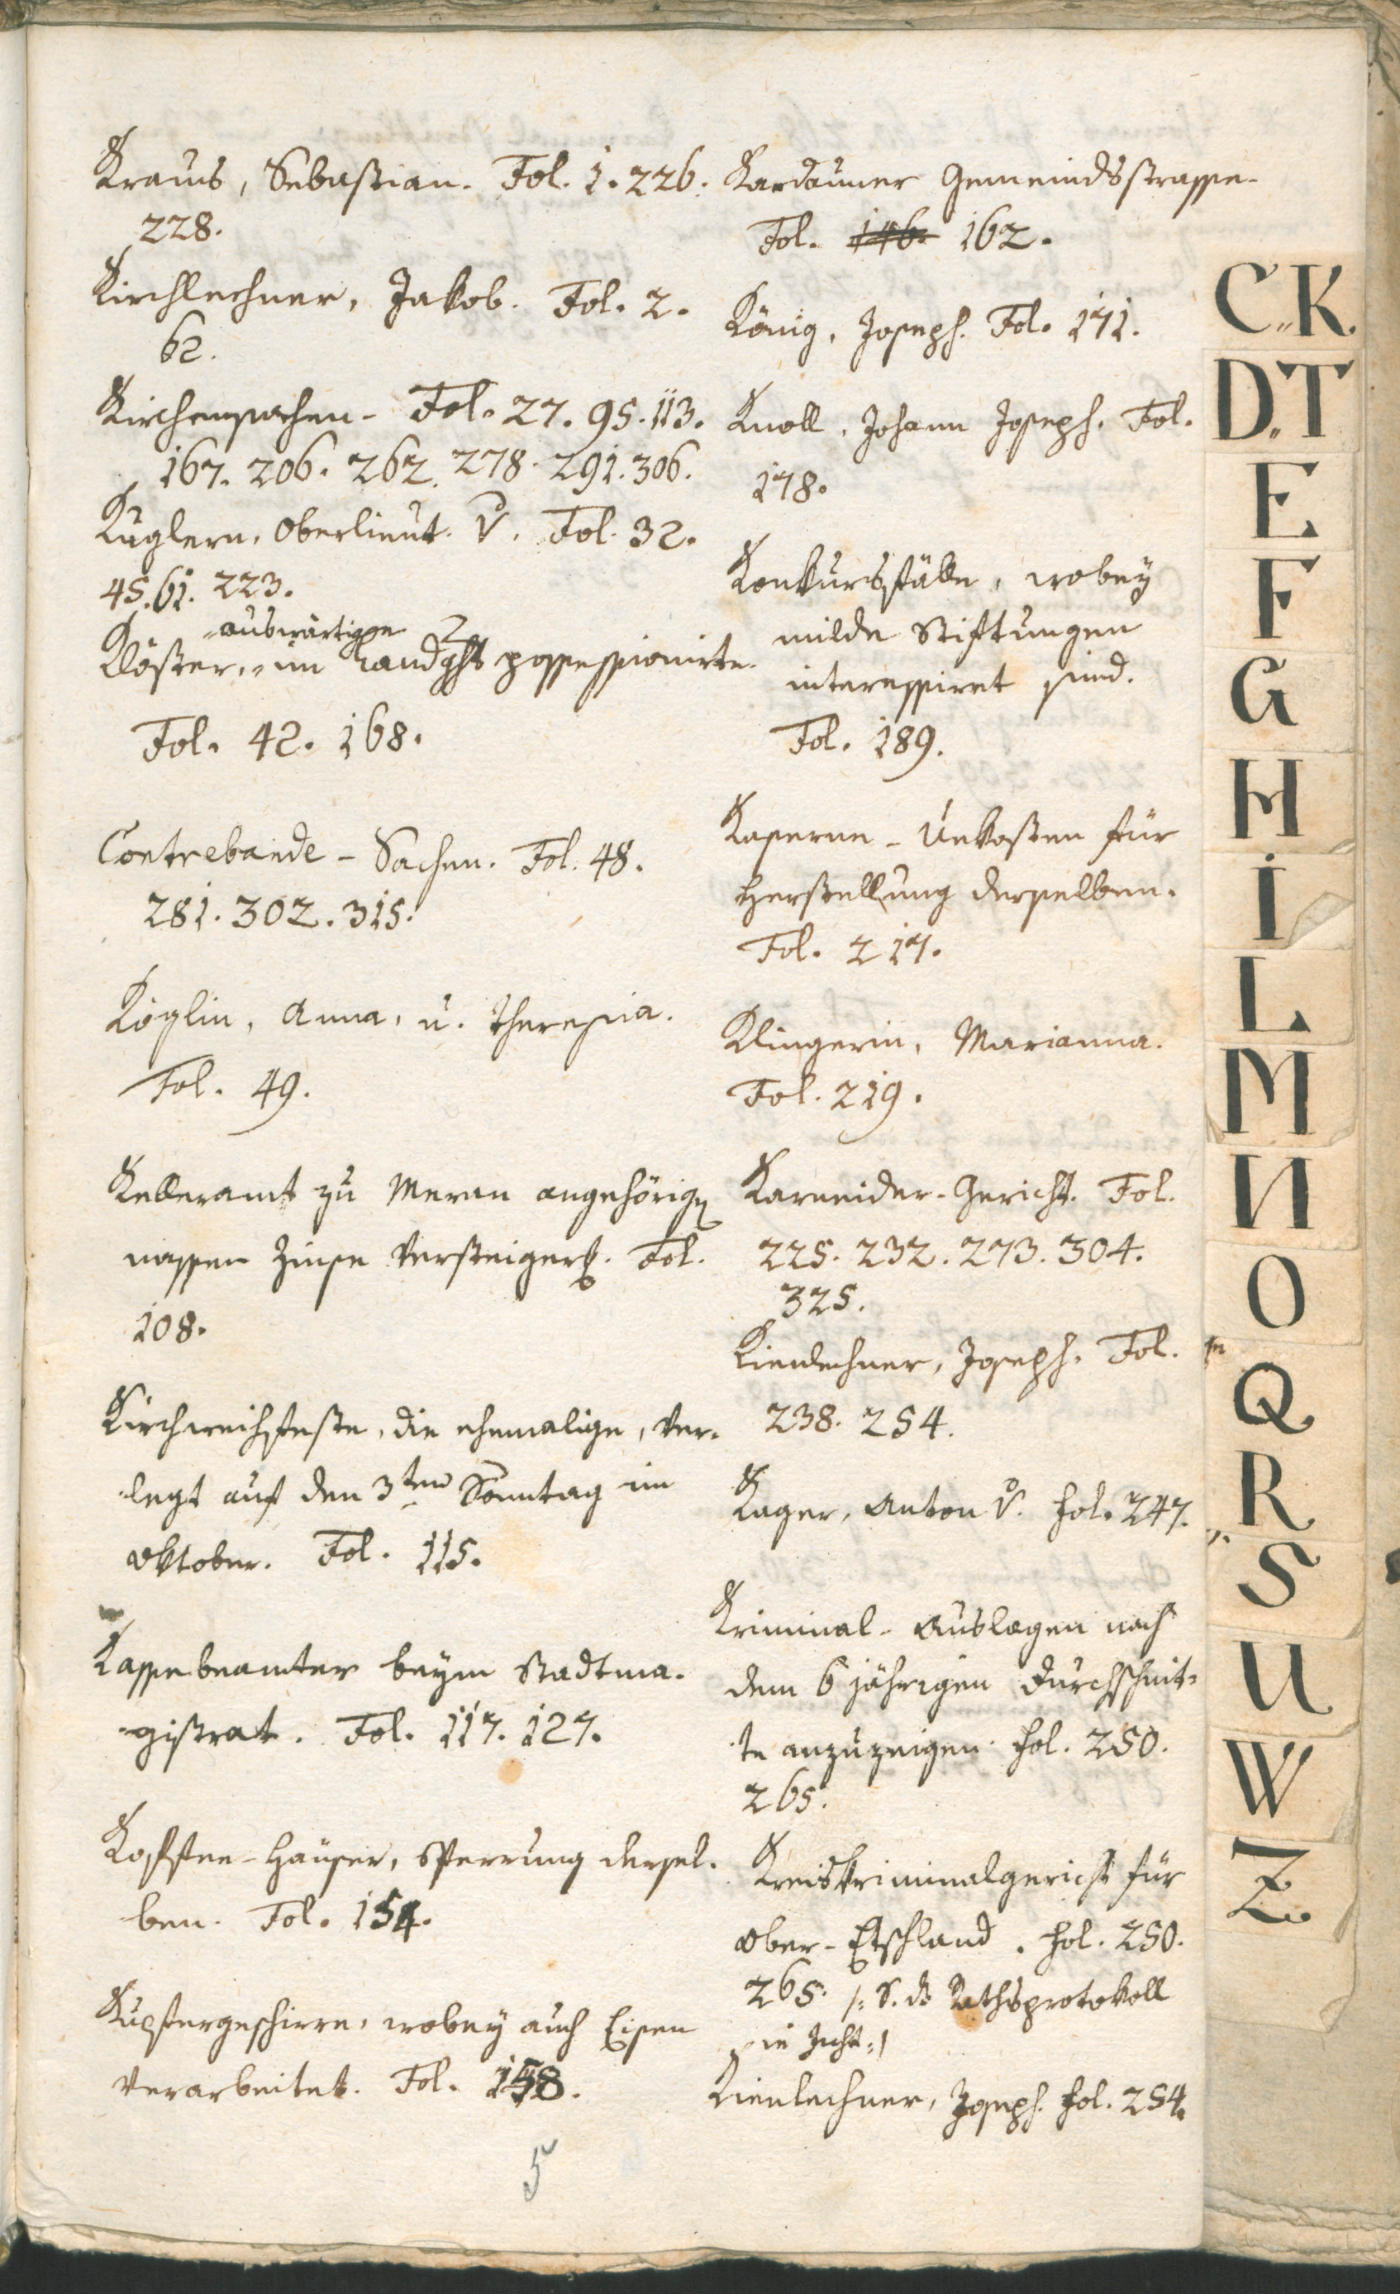 Kraus, Sebastian. Fol. 1. 226.
228.
Kirchlechner, Jakob. Fol. 2.
62.
Kirchensachen - Fol. 27. 95. 113.
167. 206. 262. 278. 291. 306.
Kuglern, Oberlieut. v. Fol. 32.
45. 61. 223.
auswärtige
Klöster, im Landght possessionirte.
Fol. 42. 168.
Contrebande - Sachen. Fol. 48.
281. 302. 315.
Köglin, Anna, u. Theresia.
Fol. 49.
Kelleramt zu Meran angehörige
nassen Zinse Versteiger. Fol.
108.
Kirchweihfeste, die ehemalige, ver-
legt auf den 3ten Sonntag im
Oktober. Fol. 115.
Kassebeamter beym Stadtma-
gistrat. Fol. 117. 127.
Koffee-Häuser, Sperrung dersel-
ben. Fol. 154.
Kupfergeschirre, wobey auch Eisen
verarbeitet. Fol. 158.
5
Kardauner Gemeindsstrasse.
Fol. 146. 162.
König, Joseph. Fol. 171.
Knoll, Johann Joseph. Fol.
178.
Konkursfälle, wobey
milde Stiftungen
interessiret sind.
Fol. 189.
Kaserne - Unkosten für
Herstellung derselben.
Fol. 217.
Klingerin, Marianna.
Fol. 219.
Karneider-Gericht. Fol.
225. 232. 273. 304.
325.
Kienlechner, Joseph. Fol.
238. 254.
Kager, Anton v. Fol. 247.
Kriminal-Auslagen nach
dem 6 jährigen Durchschnit-
te anzuzeigen. Fol. 250.
265.
Kreiskriminalgericht für
Ober-Etschland. Fol. 250.
265. /: S. ds Rathsprotokoll
in :/
Kienlechner, Joseph. Fol. 254.
C„K.
D„T
E
F
G
H
I
L
M
N
O
Q
R
S
U
W
Z.